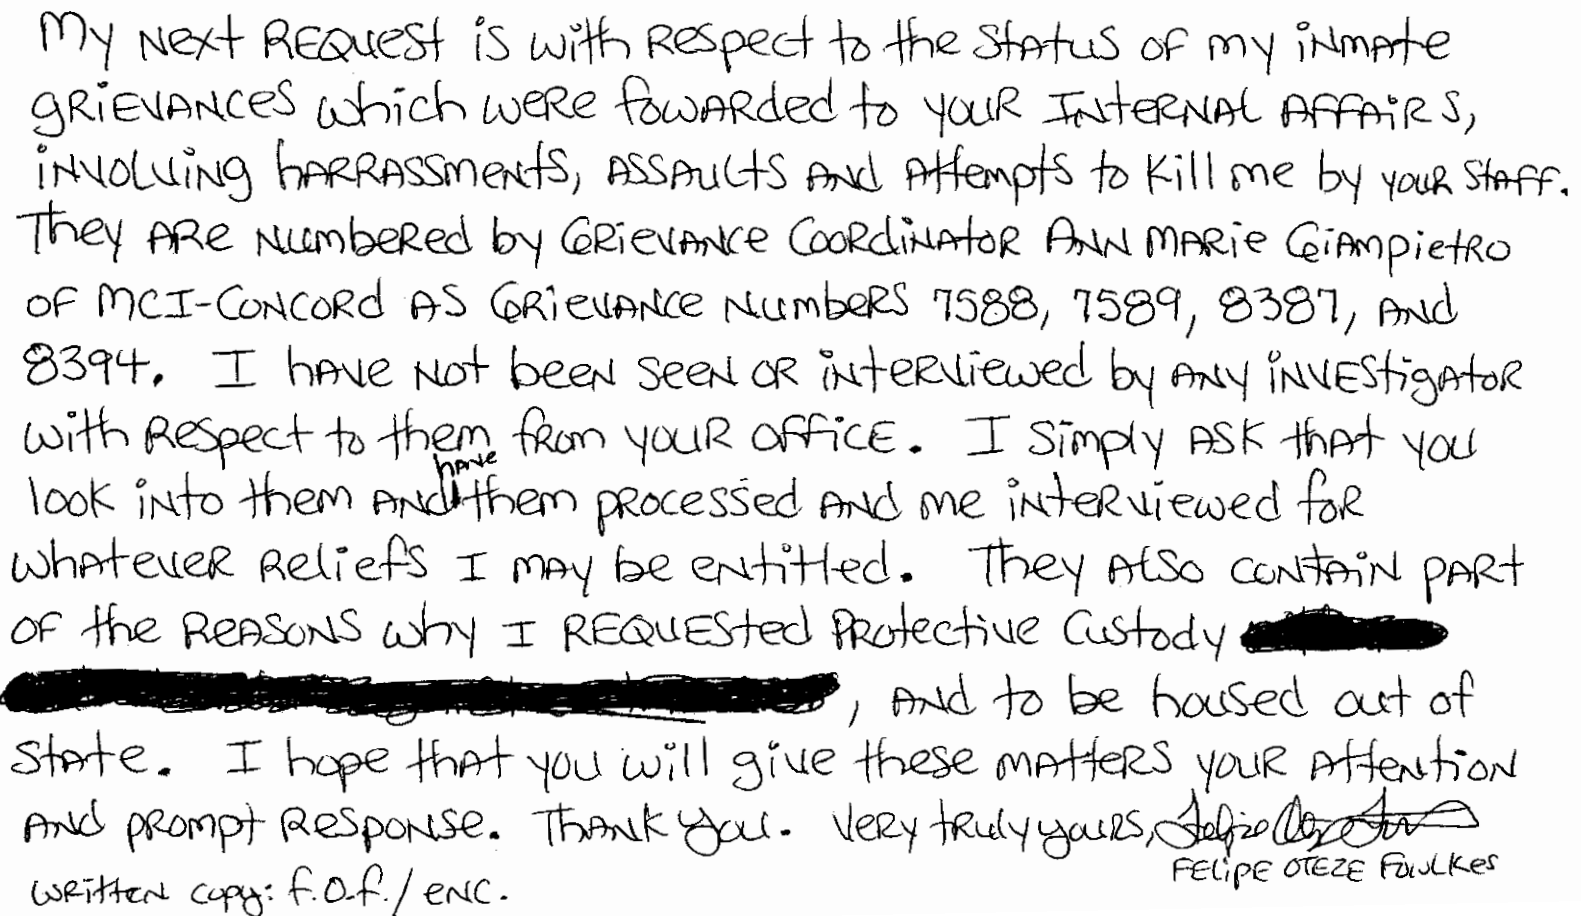 My Next Request is with respect to the status of my inmate
grievances which were fowarded to your Internal Affairs,
involving harrassments, assaults and attempts to kill me by your staff.
They are numbered by Grievance Coordinator Ann Marie Giampietro
of MCI-Concord as Grievance Numbers 7588, 7589, 8387, and
8394. I have not been seen or interviewed by any investigator
with respect to them from your office. I simply ask that you
look into them and have them processed and me interviewed for
whatever reliefs I may be entitled. They also contain part
of the reasons why I requested Protective Custody
, and to be housed out of
state. I hope that you will give these matters your attention
and prompt response. Thank you. Very truly yours, Felipe Oteze Fowlkes
FELIPE OTEZE FOWLKES
written copy: f.o.f./enc.